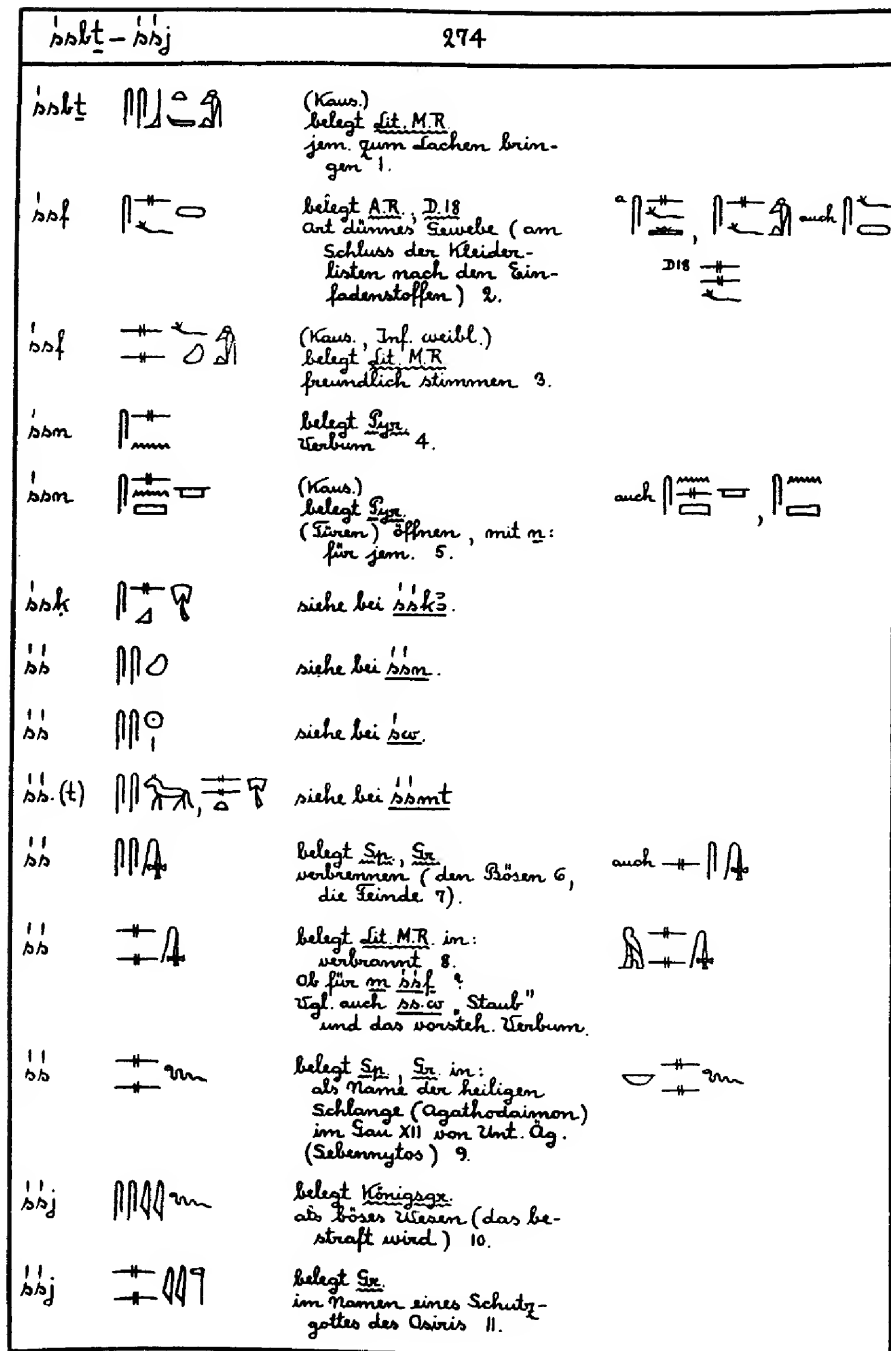 śsbṯ – śśj 274
śsbṯ (Kaus.)
belegt Lit. M.R.
jem. zum Lachen brin-
gen 1.
śsf belegt A.R., D.18
Art dünnes Gewebe (am
Schluss der Kleider-
listen nach den Ein-
fadenstoffen) 2.
a , auch
D18
śsf (Kaus., Inf. weibl.)
belegt Lit. M.R
freundlich stimmen 3.
śsn belegt Pyr.
Verbum 4.
śsn (Kaus.)
belegt Pyr.
(Türen) öffnen, mit n:
für jem. 5.
auch ,
śsḳ siehe bei śśkꜣ.
śś siehe bei śśn.
śś siehe bei św.
śś.(t) , siehe bei śśmt
śś belegt Sp., Gr.
verbrennen (den Bösen 6,
die Feinde 7).
auch
śś belegt Lit. M.R. in:
verbrannt 8.
Ob für m śśf ?
Vgl. auch ss.w „Staub"
und das vorsteh. Verbum.
śś belegt Sp., Gr. in:
als Name der heiligen
Schlange (Agathodaimon)
im Gau XII von Unt. Äg.
(Sebennytos) 9.
śśj belegt Königsgr.
als böses Wesen (das be-
straft wird) 10.
śśj belegt Gr.
im Namen eines Schutz-
gottes des Osiris 11.